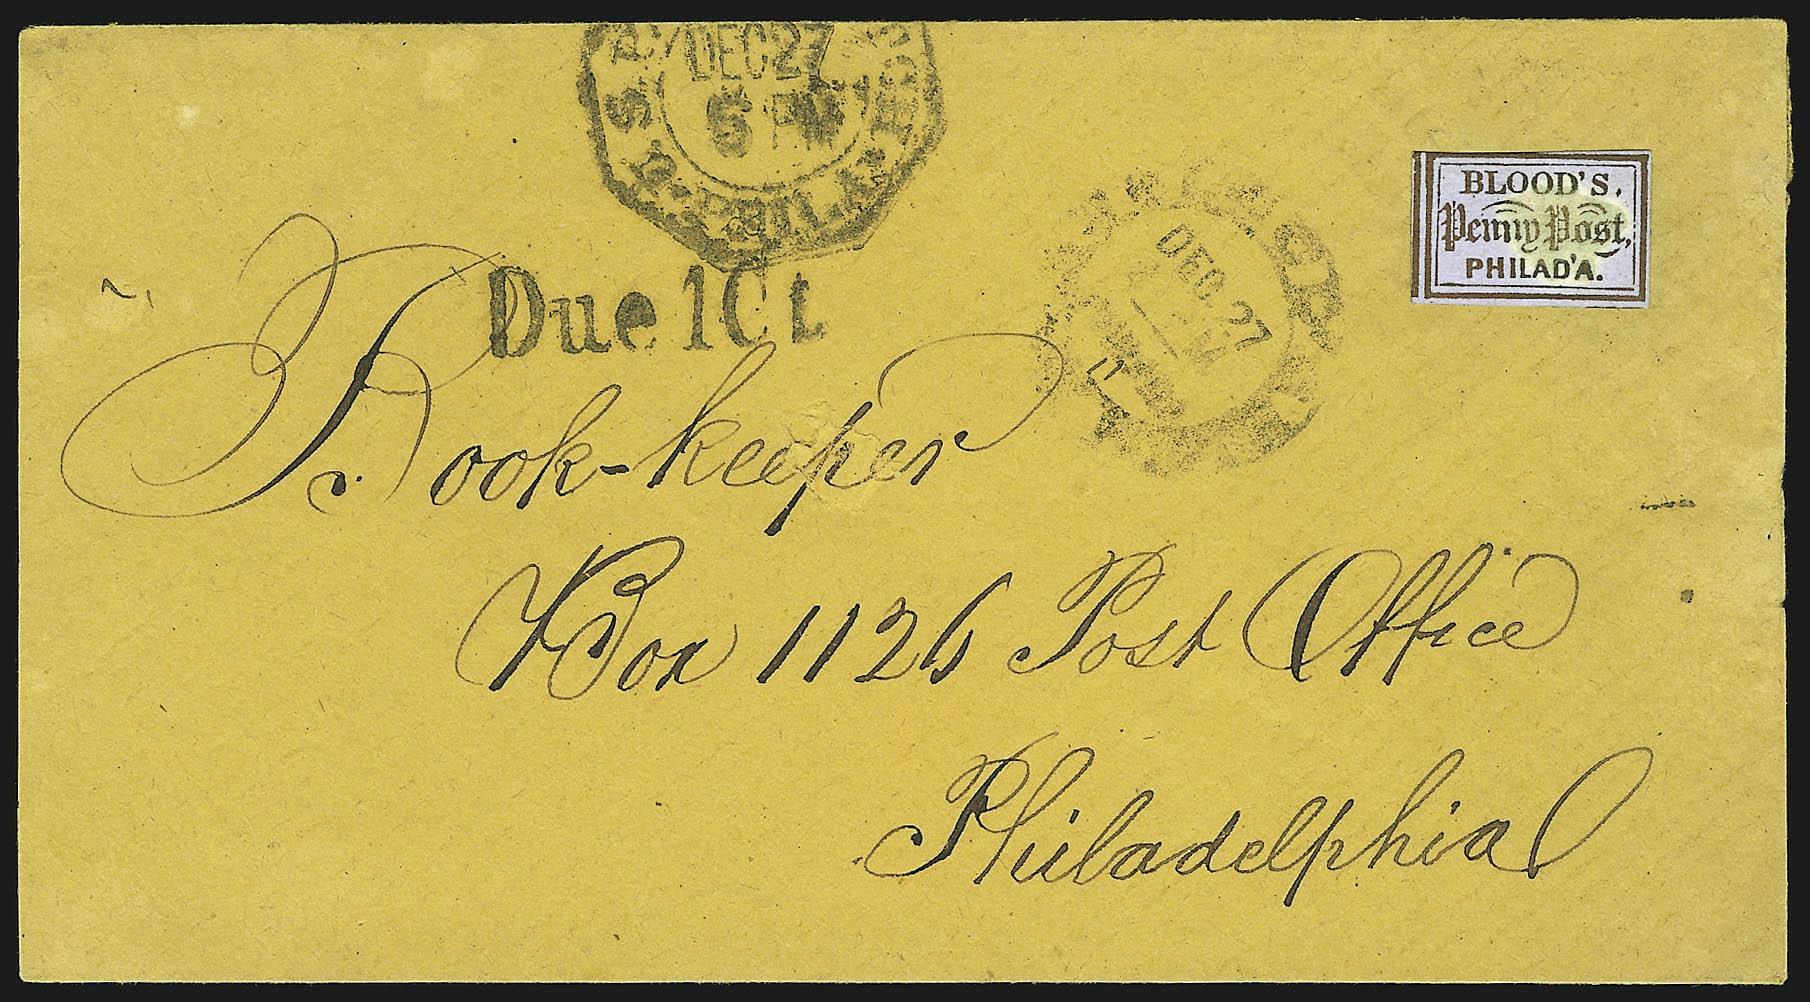 DEC 27
5 PM
U.S.P.O. PHILA.
DEC. 27
BLOOD'S.
Penny Post,
PHILAD'A.
Due 1 Ct
Book-keeper
Box 1126 Post Office
Philadelphia